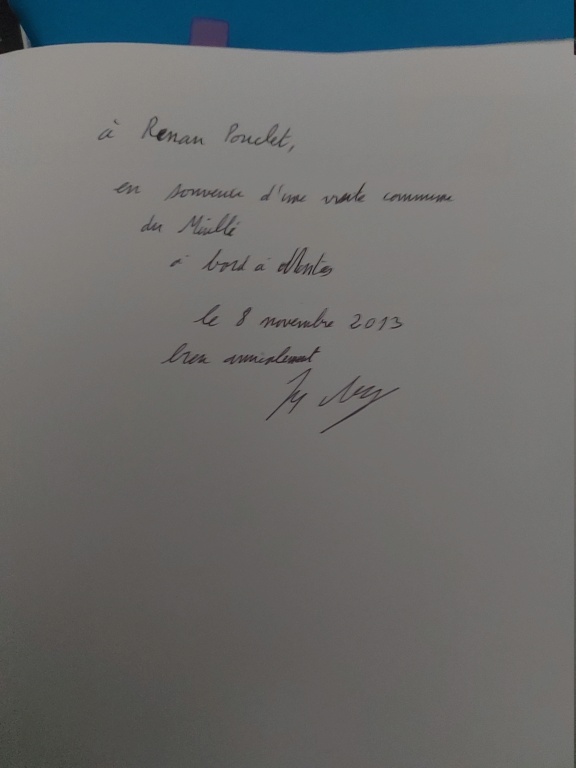 à Renan Pouclet,
en souvenir d'une visite commune
du Maillé
à bord à
le 8 novembre 2013
bien amicalement